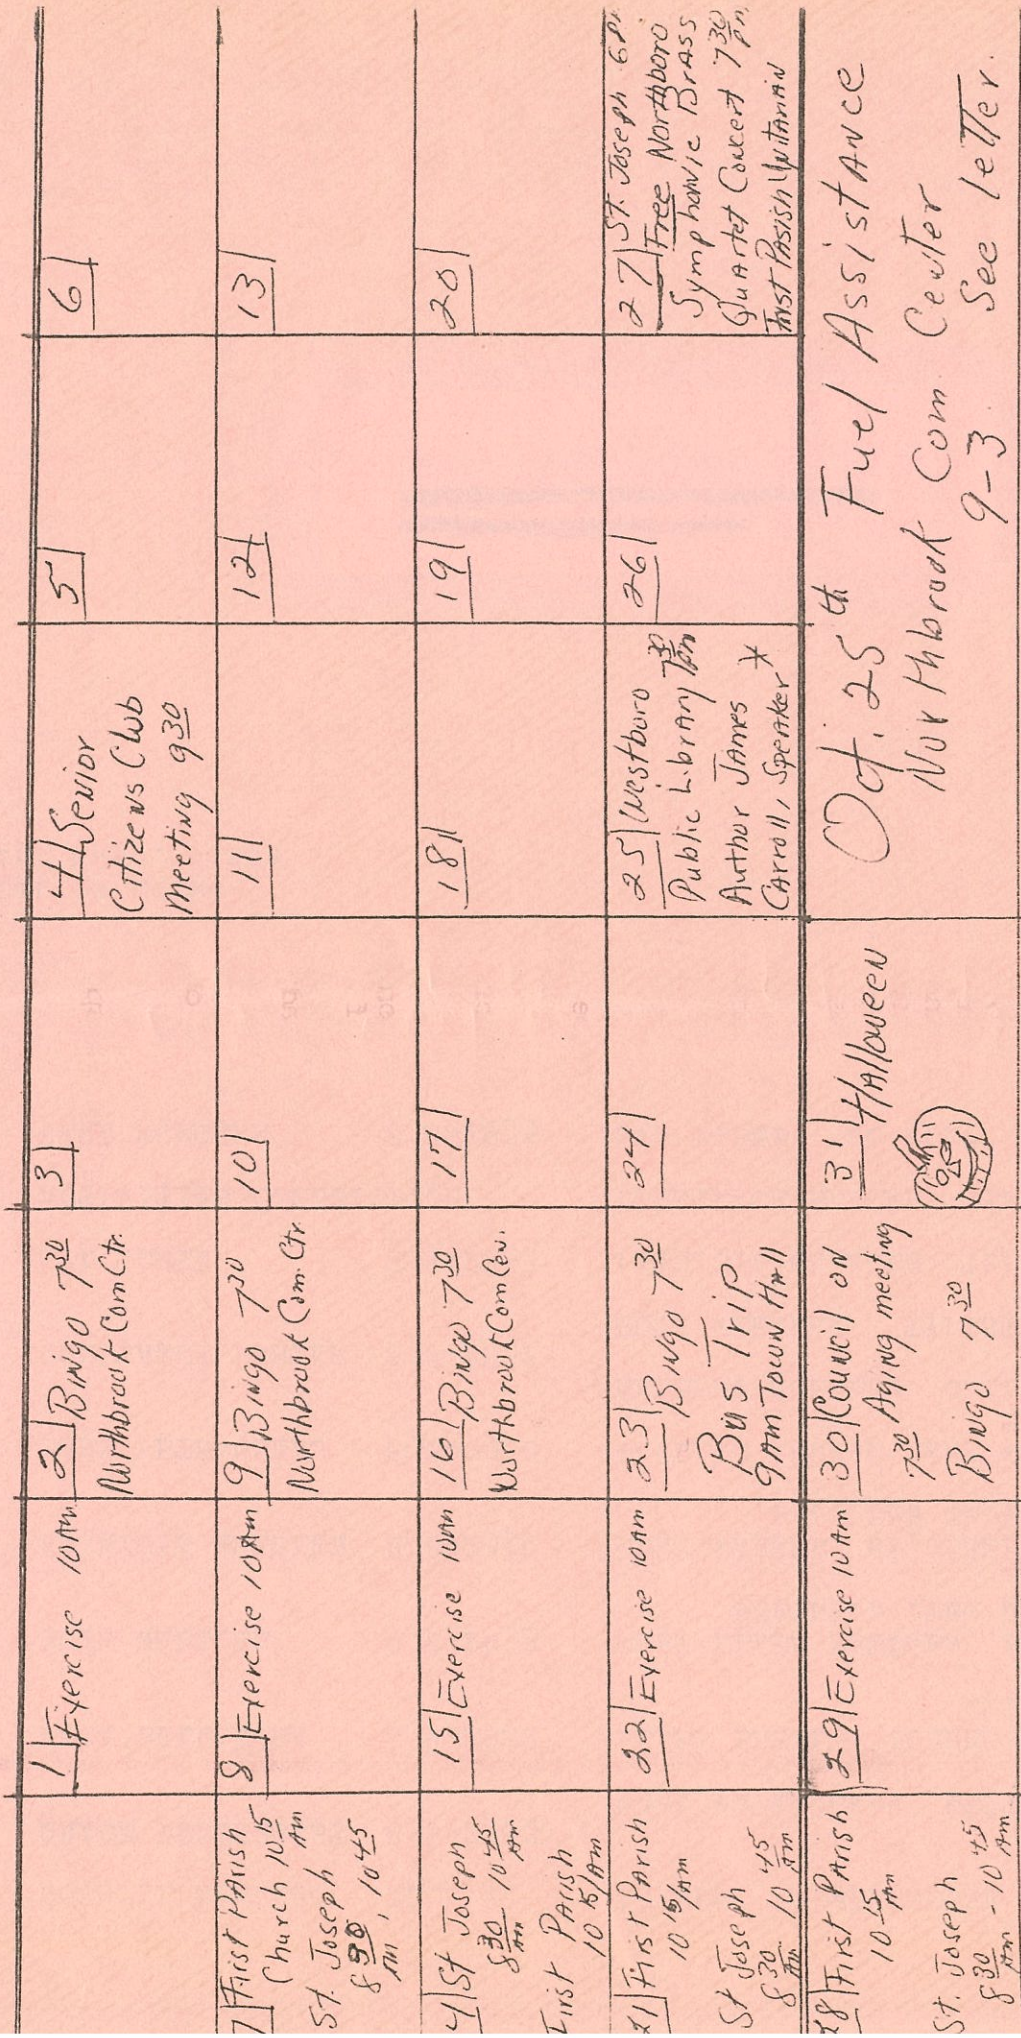 1 Exercise 10AM
2 Bingo 7 30
Northbrook Com Ctr.
3
4 Senior
Citizens Club
Meeting 9 30
5
6
7 First Parish
Church 10 15
AM
St. Joseph
8 30, 10 45
AM
8 Exercise 10AM
9 Bingo 7 30
Northbrook Com. Ctr.
10
11
12
13
4 St Joseph
8 30 10 45
AM AM
First Parish
10 15/AM
15 Exercise 10AM
16 Bingo 7 30
Northbrook Com Cen.
17
18
19
20
21 First Parish
10 15/AM
St Joseph
8 30 10 45
AM AM
22 Exercise 10AM
23 Bingo 7 30
Bus Trip
9AM Town Hall
24
25 Westboro
Public Library 7 30 pm
Author James
Carroll, Speaker *
26
27 St. Joseph 6 PM
Free Northboro
Symphonic Brass
Quartet Concert 7 30 pm
First Parish Unitarian
28 First Parish
10 15
AM
St. Joseph
8 30 - 10 45
AM AM
29 Exercise 10AM
30 Council on
7 30 Aging meeting
Bingo 7 30
31 Halloween
Oct. 25th Fuel Assistance
Northbrook Com. Center
9-3. See letter.